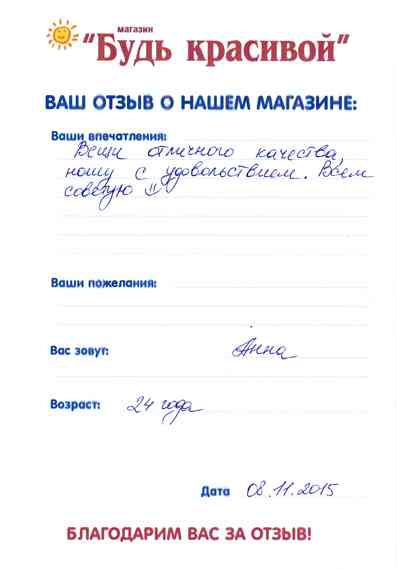 магазин
"Будь красивой"
ВАШ ОТЗЫВ О НАШЕМ МАГАЗИНЕ:
Ваши впечатления:
Вещи отличного качества,
ношу с удовольствием. Всем
советую :)
Ваши пожелания:
Вас зовут: Анна
Возраст: 24 года
Дата 08.11.2015
БЛАГОДАРИМ ВАС ЗА ОТЗЫВ!